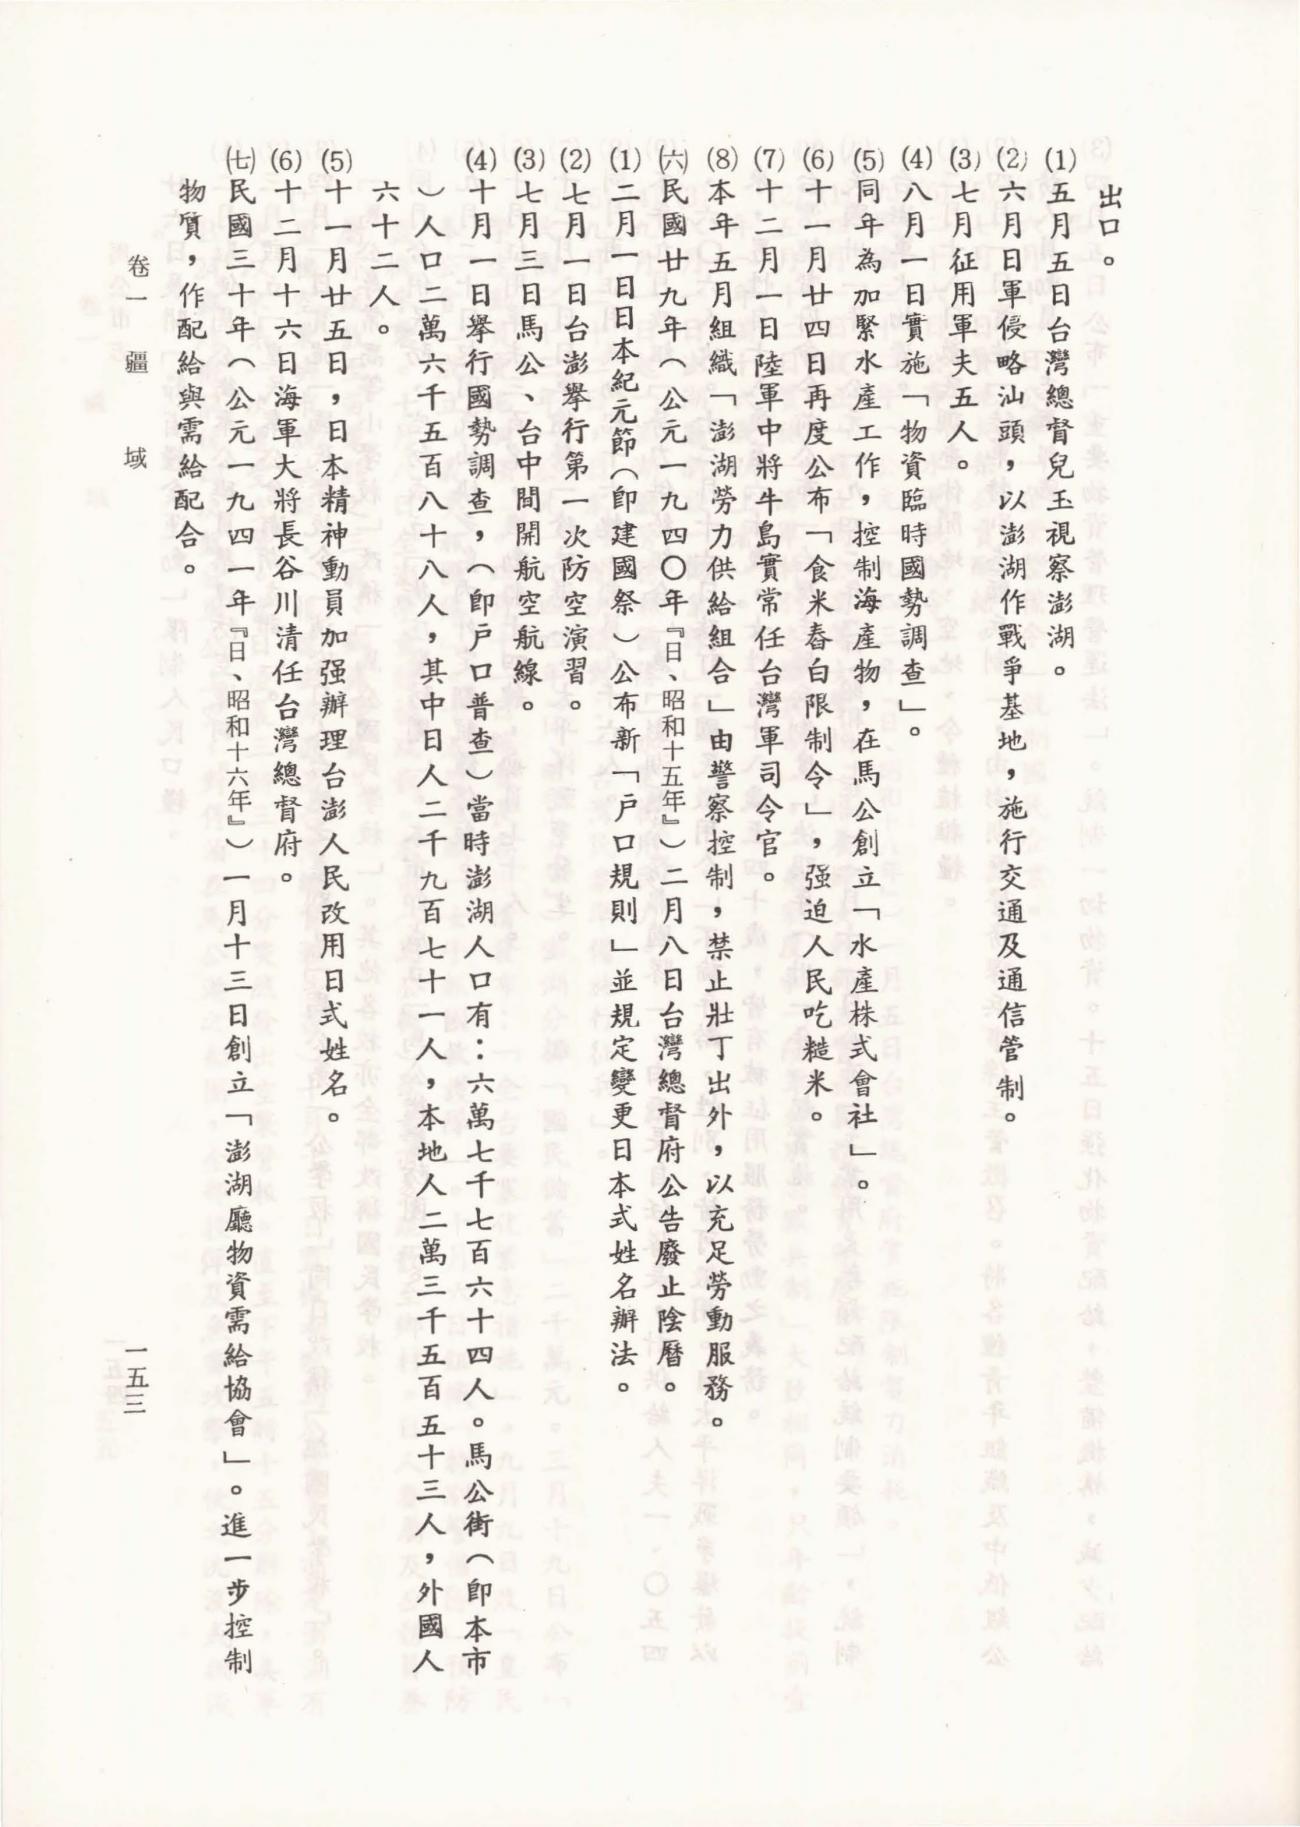 出口。
(1)五月五日台灣總督兒玉視察澎湖。
(2)六月日軍侵略汕頭，以澎湖作戰爭基地，施行交通及通信管制。
(3)七月征用軍夫五人。
(4)八月一日實施「物資臨時國勢調查」。
(5)同年為加緊水產工作，控制海產物，在馬公創立「水產株式會社」。
(6)十一月廿四日再度公布「食米舂白限制令」，强迫人民吃糙米。
(7)十二月一日陸軍中將牛島實常任台灣軍司令官。
(8)本年五月組織「澎湖勞力供給組合」由警察控制，禁止壯丁出外，以充足勞動服務。
㈥民國廿九年（公元一九四〇年『日、昭和十五年』）二月八日台灣總督府公告廢止陰曆。
(1)二月一日日本紀元節（卽建國祭）公布新「戶口規則」並規定變更日本式姓名辦法。
(2)七月一日台澎舉行第一次防空演習。
(3)七月三日馬公、台中間開航空航線。
(4)十月一日舉行國勢調查，（卽戶口普查）當時澎湖人口有：六萬七千七百六十四人。馬公街（卽本市
）人口二萬六千五百八十八人，其中日人二千九百七十一人，本地人二萬三千五百五十三人，外國人
六十二人。
(5)十一月廿五日，日本精神動員加强辦理台澎人民改用日式姓名。
(6)十二月十六日海軍大將長谷川清任台灣總督府。
㈦民國三十年（公元一九四一年『日、昭和十六年』）一月十三日創立「澎湖廳物資需給協會」。進一步控制
物質，作配給與需給配合。
卷一　疆　域
一五三